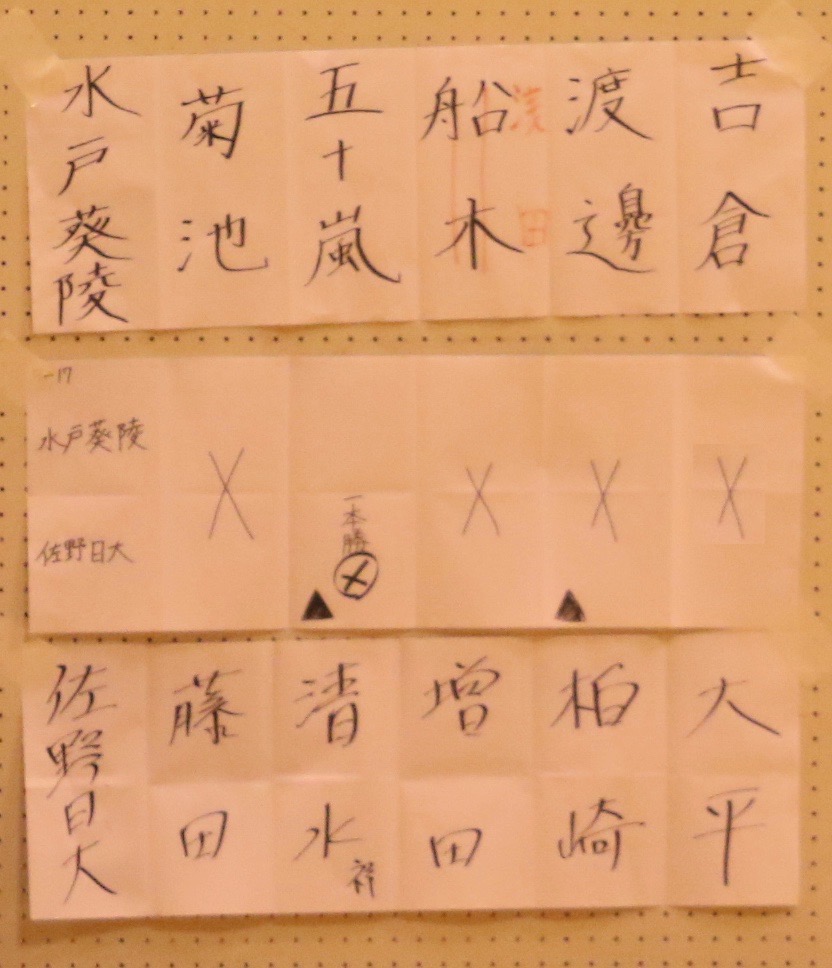 吉倉
渡邊
浅田
船木
五十嵐
菊池
水戸葵陵
一17
水戸葵陵
佐野日大
一本勝
メ
大平
柏崎
増田
清水 祥
藤田
佐野日大